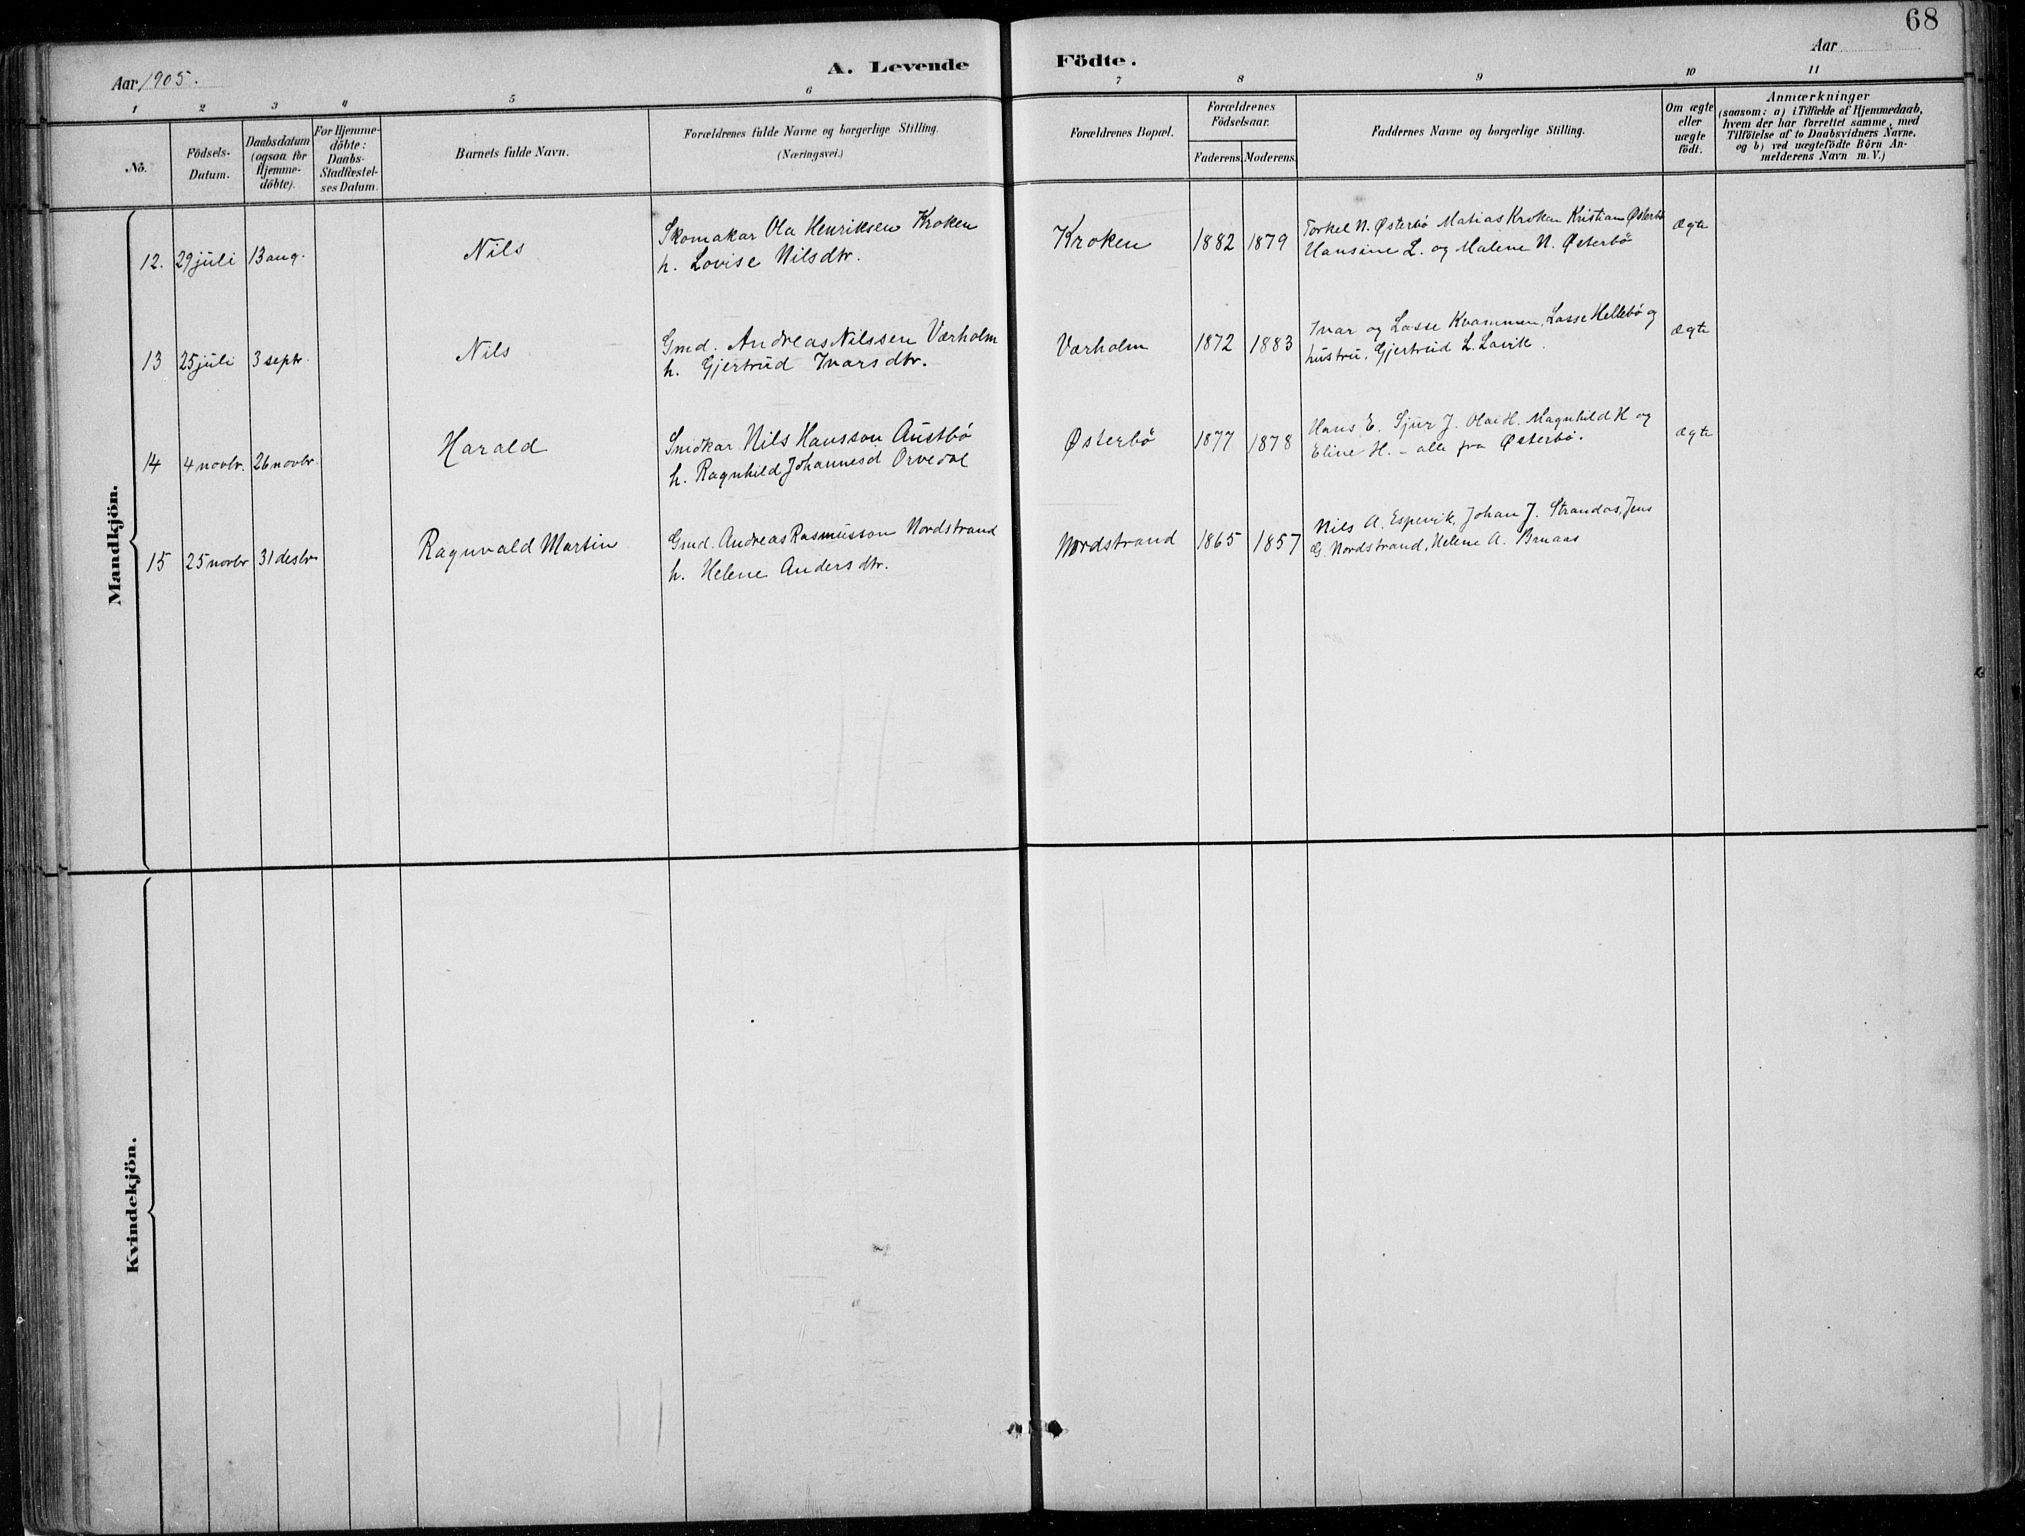 68
Aar 1905.
A. Levende Födte.
Aar
1 2 3 4 5 6 7 8 9 10 11
No.
Födsels-Datum.
Daabsdatum (ogsaa for Hjemmedöbte).
For Hjemmedöbte: Daabs-Stadfæstelses Datum.
Barnets fulde Navn.
Forældrenes fulde Navne og borgerlige Stilling.
(Næringsvei.)
Forældrenes Bopæl.
Forældrenes Födselsaar.
Faderens. Moderens.
Faddernes Navne og borgerlige Stilling.
Om ægte eller uægte födt.
Anmærkninger
(saasom: a) i Tilfælde af Hjemmedaab, hvem der har forrettet samme, med Tilföielse af to Daabsvidners Navne, og b) ved uægtefödte Börn Anmelderens Navn m. V.)
Mandkjön.
12. 29 juli 13 aug. Nils Skomakar Ola Henriksen Kroken Kroken 1882 1879 Torkel N. Østerbø Matias Kroken Kristian Østerbø ægte
h. Lovise Nilsdtr. Hansine L. og Malene N. Østerbø
13 25 juli 3 septr. Nils Gmd. Andreas Nilssen Værholm Værholm 1872 1883 Ivar og Lasse Kvammen, Lasse Hellebø og ægte
h. Gjertrud Ivarsdtr. hustru, Gjertrud L. Lavik.
14 4 novbr. 26 novbr. Harald Smdkar Nils Hansson Austbø Østerbö 1877 1878 Hans E. Sjur J. Olai H. Magnhild H og ægte
h. Ragnhild Johannesd Orvedal Eline H. - alle fra Østerbö.
15 25 novbr 31 desbr Ragnvald Martin Gmd. Andreas Rasmusson Nordstrand Nordstrand 1865 1857 Nils A. Espevik, Johan J. Strandos, Jens
h. Helene Andersdtr. G. Nordstrand, Helene A. Bruaas
Kvindekjön.